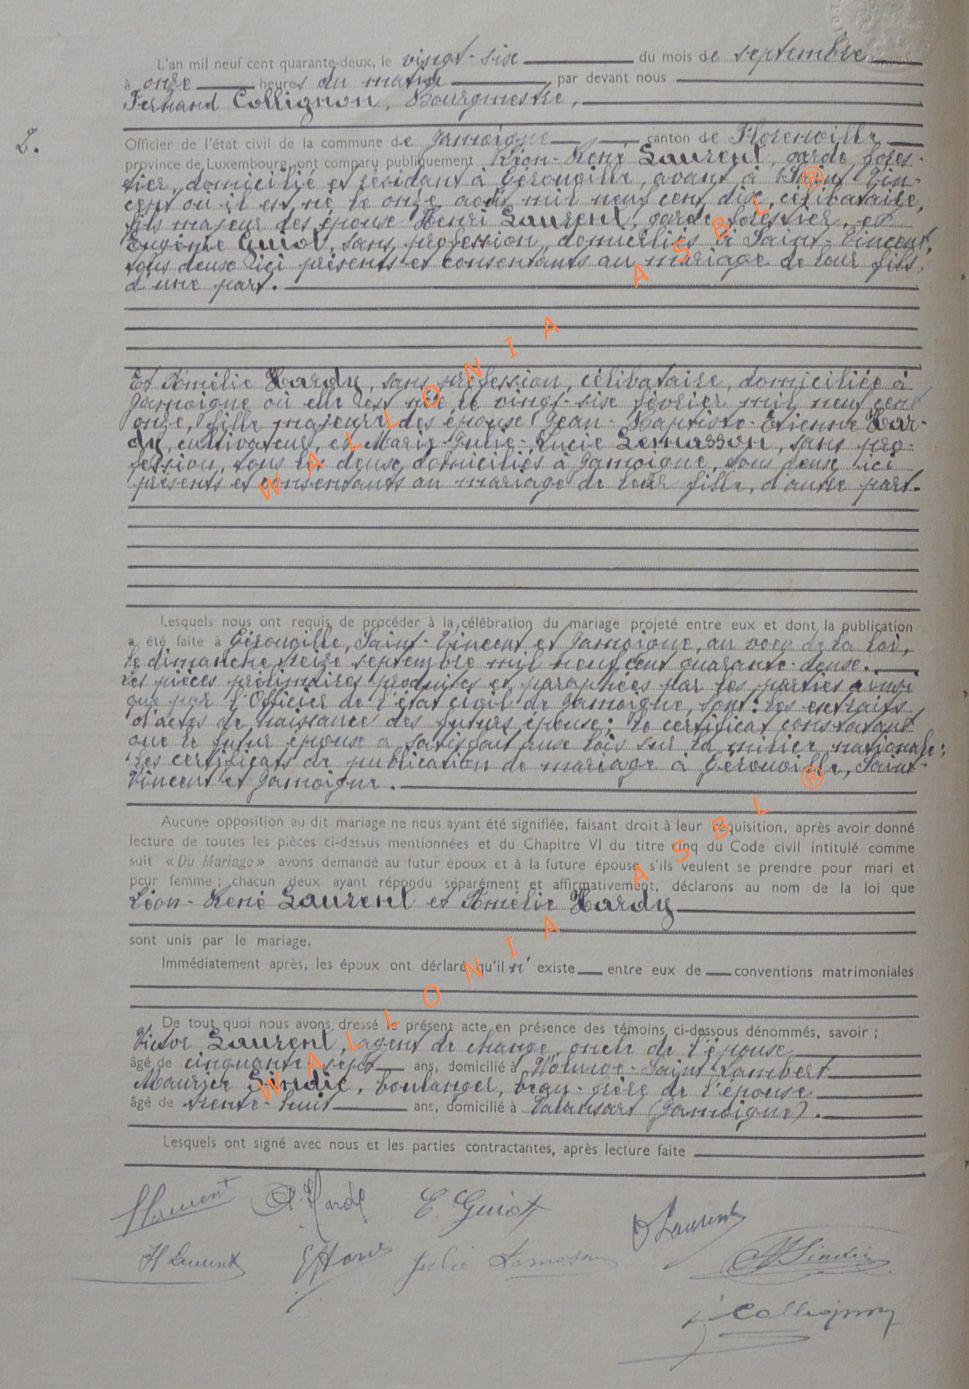 L'an mil neuf cent quarante-deux, le vingt-six du mois de septembre
à onze heures du matin, par devant nous
Fernand Collignon, Bourgmestre,
2.
Officier de l'état civil de la commune de Jamoigne canton de Florenville
province de Luxembourg, ont comparu publiquement Léon-René Laurent, garde fores-
tier, domicilié et résidant à Gérouville, avant à Saint Vin-
cent où il est né le onze août mil neuf cent dix, célibataire,
fils majeur des époux Henri Laurent, garde forestier, et
Eugénie Guiot, sans profession, domiciliés à Saint-Vincent,
tous deux ici présents et consentants au mariage de leur fils,
d'une part.
Et Amélie Hardy, sans profession, célibataire, domiciliée à
Jamoigne où elle est née le vingt-six février mil neuf cent
onze, fille majeure des époux Jean-Baptiste-Etienne Har-
dy, cultivateur, et Marie-Julie-Lucie Lemasson, sans pro-
fession, tous les deux domiciliés à Jamoigne, tous deux ici
présents et consentants au mariage de leur fille, d'autre part.
Lesquels nous ont requis de procéder à la célébration du mariage projeté entre eux et dont la publication
a été faite à Gérouville, Saint-Vincent et Jamoigne, au vœu de la loi,
le dimanche treize septembre mil neuf cent quarante-deux.
Les pièces préliminaires produites et paraphées par les parties ainsi
que par l'Officier de l'état civil de Jamoigne, sont: les extraits
d'actes de naissance des futurs époux; le certificat constatant
que le futur époux a satisfait aux lois sur la milice nationale;
les certificats de publication de mariage à Gérouville, Saint-
Vincent et Jamoigne.
Aucune opposition au dit mariage ne nous ayant été signifiée, faisant droit à leur réquisition, après avoir donné
lecture de toutes les pièces ci-dessus mentionnées et du Chapitre VI du titre cinq du Code civil intitulé comme
suit « Du Mariage » avons demandé au futur époux et à la future épouse s'ils veulent se prendre pour mari et
pour femme; chacun deux ayant répondu séparément et affirmativement, déclarons au nom de la loi que
Léon-René Laurent et Amélie Hardy
sont unis par le mariage.
Immédiatement après, les époux ont déclaré qu'il n'existe entre eux de conventions matrimoniales
De tout quoi nous avons dressé le présent acte en présence des témoins ci-dessous dénommés, savoir:
Victor Laurent, agent de change, oncle de l'époux
âgé de cinquante-sept ans, domicilié à Woluwe-Saint-Lambert
Maurice Sindic, boulanger, beau-frère de l'épouse
âgé de trente-huit ans, domicilié à Valansart (Jamoigne).
Lesquels ont signé avec nous et les parties contractantes, après lecture faite
Laurent A. Hardy E. Guiot V Laurent
H Laurent E Hardy Julie Lemasson M Sindic
Collignon
WALLONIA ASBL ®
WALLONIA ASBL ®